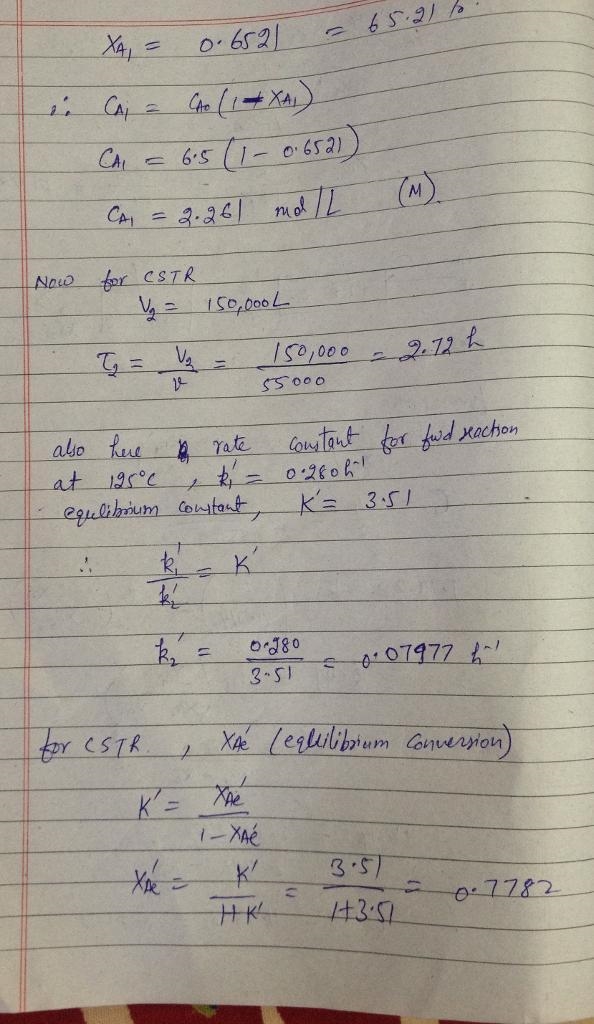 XA1 = 0.6521 = 65.21 %
∴ CA1 = CA0 (1 - XA1)
CA1 = 6.5 (1 - 0.6521)
CA1 = 2.261 mol/L (M)
Now for CSTR
V2 = 150,000L
τ2 = V2/v = 150,000/55000 = 2.72 h
also here rate constant for fwd reaction
at 125°C , k1' = 0.280h-1
equlibrium constant, K' = 3.51
∴ k1'/k2' = K'
k2' = 0.280/3.51 = 0.07977 h-1
for CSTR , XAe' (equilibrium conversion)
K' = XAe'/1-XAe'
XAe' = K'/1+K' = 3.51/1+3.51 = 0.7782